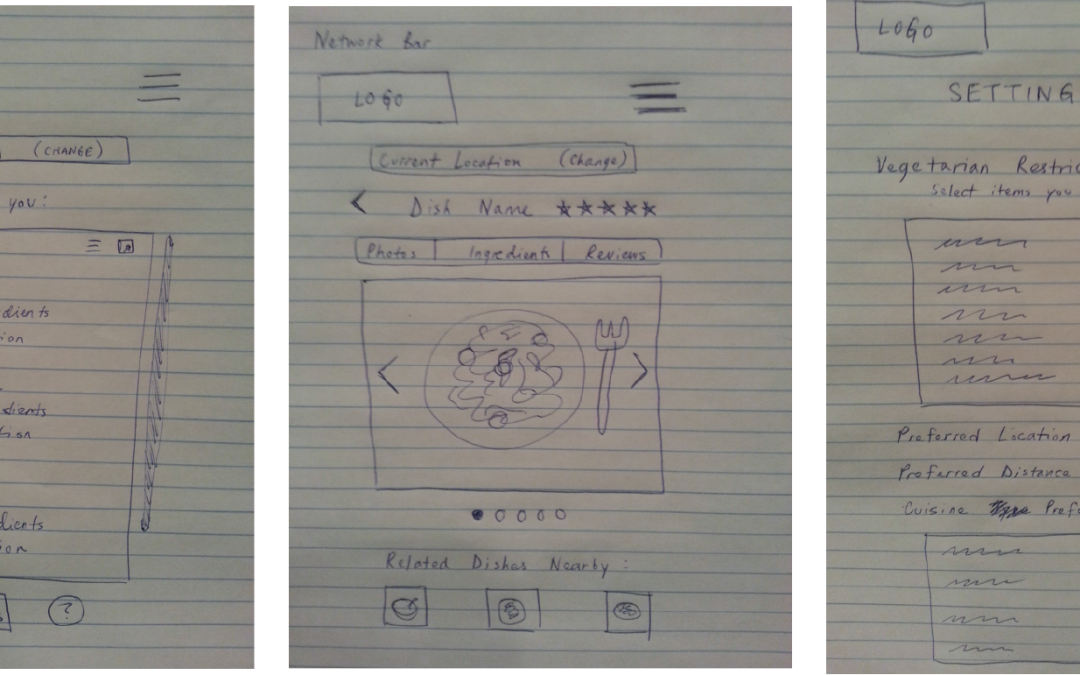 (CHANGE)
you:
dients
ion
dients
tion
dients
ion
?
Network Bar
LOGO
Current Location (Change)
< Dish Name ★★★★★
Photos Ingredients Reviews
< >
Related Dishes Nearby :
LOGO
SETTING
Vegetarian Restric
Select items you
Preferred Location
Preferred Distance
Cuisine Prefe